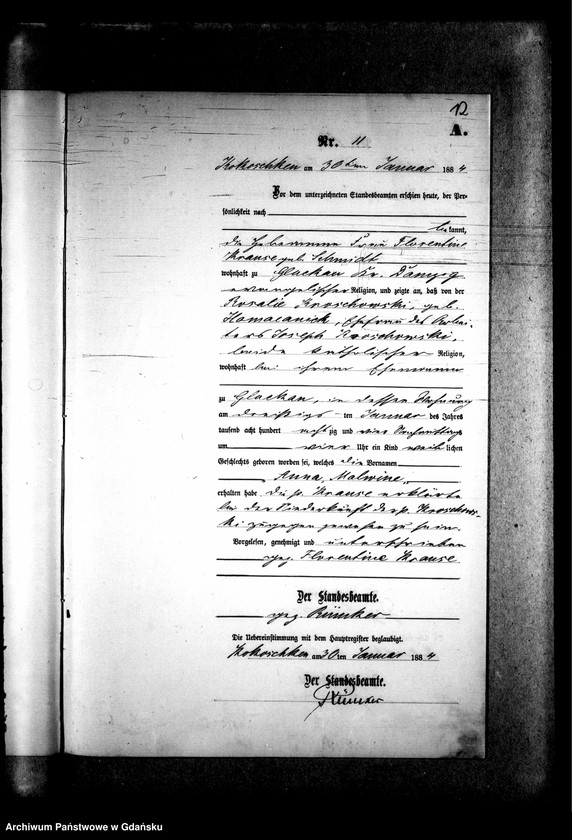 12
A.
Nr. 11
Kokoschken am 30ten Januar 1884
Vor dem unterzeichneten Standesbeamten erschien heute, der Per-
sönlichkeit nach
bekannt,
die Hebeamme Frau Florentine
Krause geb. Schmidt
wohnhaft zu Glackau Kr. Danzig
evangelischer Religion, und zeigte an, daß von der
Rosalie Kroschowski, geb.
Ehefrau des Arbei-
ters Joseph Kroschowski,
beide katholischer Religion,
wohnhaft bei ihrem Ehemanne
zu Glackau, in dessen Wohnung
am dreißigsten Januar des Jahres
tausend acht hundert achtzig und vier Nachmittags
um vier Uhr ein Kind weiblichen
Geschlechts geboren worden sei, welches die Vornamen
Anna, Malwine,
erhalten habe die p. Krause erklärte
bei der Niederkunft der p. Kroschows-
ki zugegen gewesen zu sein.
Vorgelesen, genehmigt und unterschrieben
gez. Florentine Krause
Der Standesbeamte.
gez. Rümker
Die Uebereinstimmung mit dem Hauptregister beglaubigt.
Kokoschken am 30ten Januar 1884
Der Standesbeamte.
Rümker
Archiwum Państwowe w Gdańsku